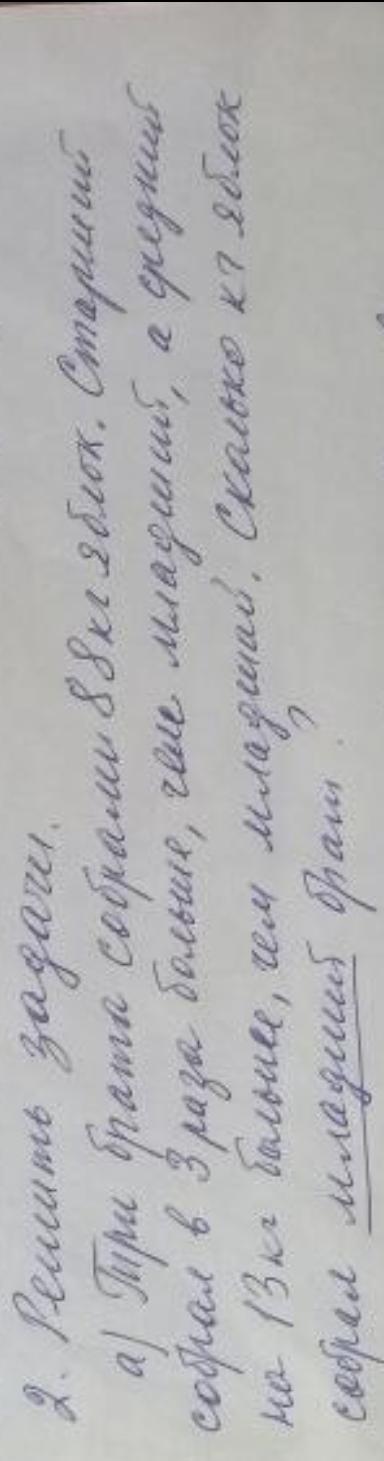 2. Решить задачи.
а) Три брата собрали 88 кг яблок. Старший
собрал в 3 раза больше, чем младший, а средний
на 13 кг больше, чем младший. Сколько кг яблок
собрал младший брат?